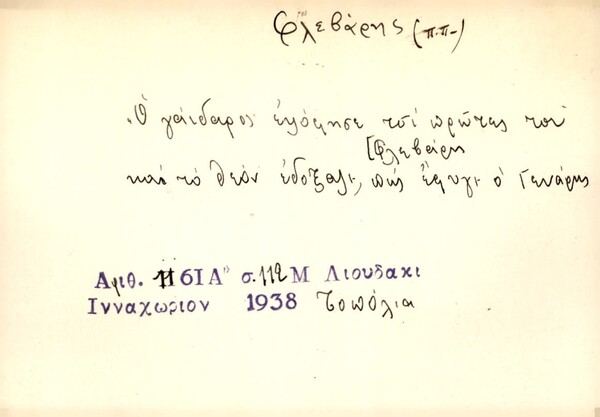 Φλεβάρης (π.π.)
Ὁ γάιδαρος ἐψόφησε τσί πρῶτες τοῦ
[Φλεβάρη
καί τό θεόν ἐδόξαζε, πώς ἔφυγε ὁ Γενάρης
Αριθ. 1161Α" σ. 112 Μ Λιουδακι
Ινναχωριον 1938 Τοπόλια